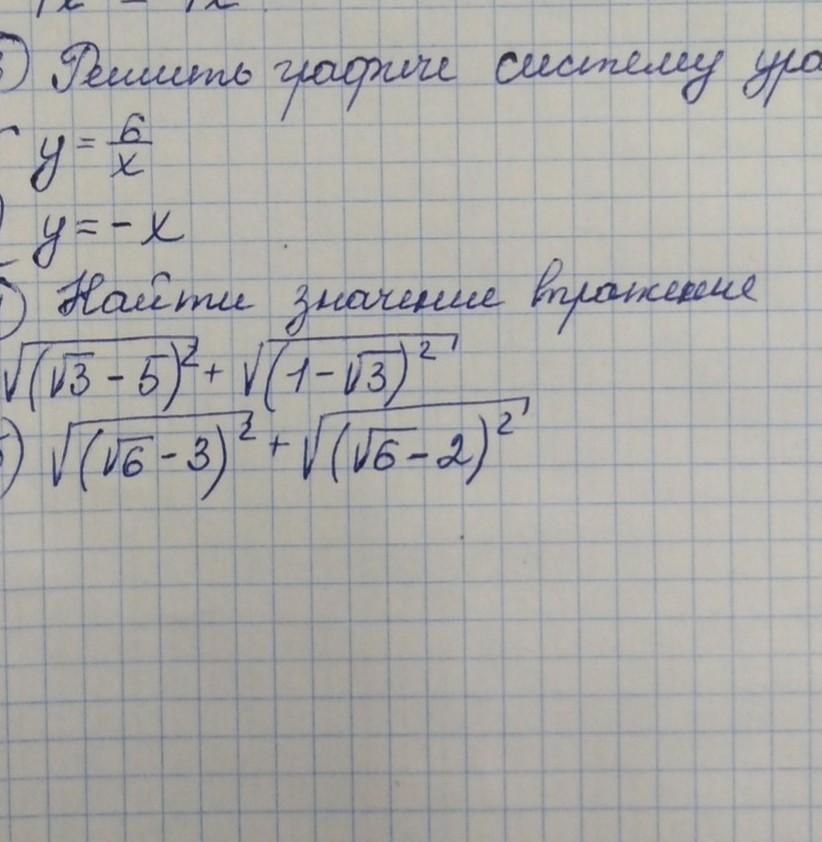 Решить графиче систему ура
y = 6/x
y = - x
Найти значение выражение
√(√3 - 5)² + √(1 - √3)²
√(√6 - 3)² + √(√6 - 2)²